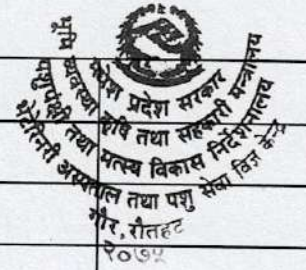 मधेश प्रदेश सरकार
भूमि व्यवस्था कृषि तथा सहकारी मन्त्रालय
पशुपन्छी तथा मत्स्य विकास निर्देशनालय
भेटेरिनरी अस्पताल तथा पशु सेवा विज्ञ केन्द्र
गौर, रौतहट
२०७५